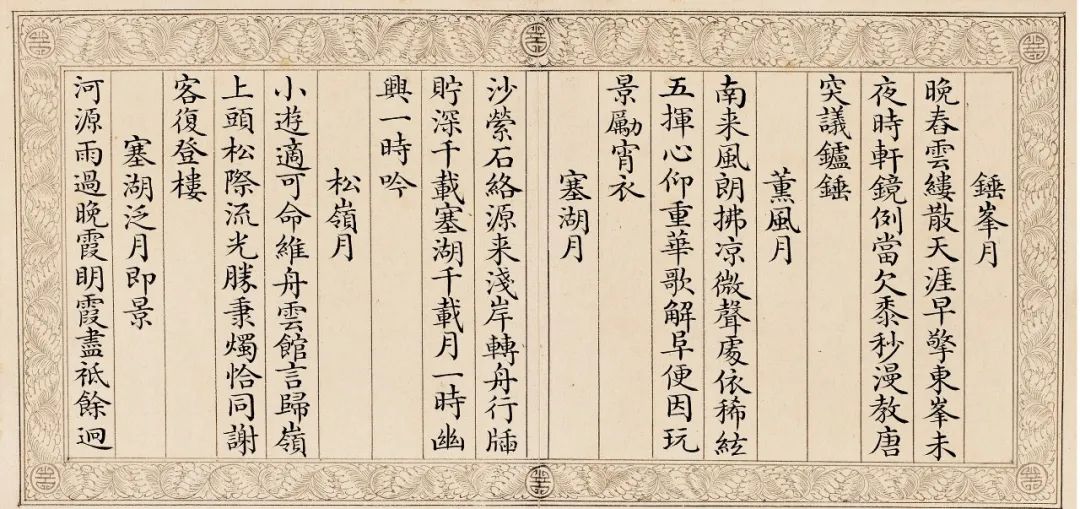 錘峯月
晚舂雲縷散天涯早擎東峯未
夜時軒鏡例當欠黍秒漫教唐
突議鑪錘
薰風月
南来風朗拂凉微聲處依稀絃
五揮心仰重華歌解阜便因玩
景勵宵衣
塞湖月
沙縈石絡源来淺岸轉舟行牐
貯深千載塞湖千載月一時幽
興一時吟
松嶺月
小遊適可命維舟雲館言歸嶺
上頭松際流光勝秉燭恰同謝
客復登樓
塞湖泛月即景
河源雨過晚霞明霞盡祇餘迥